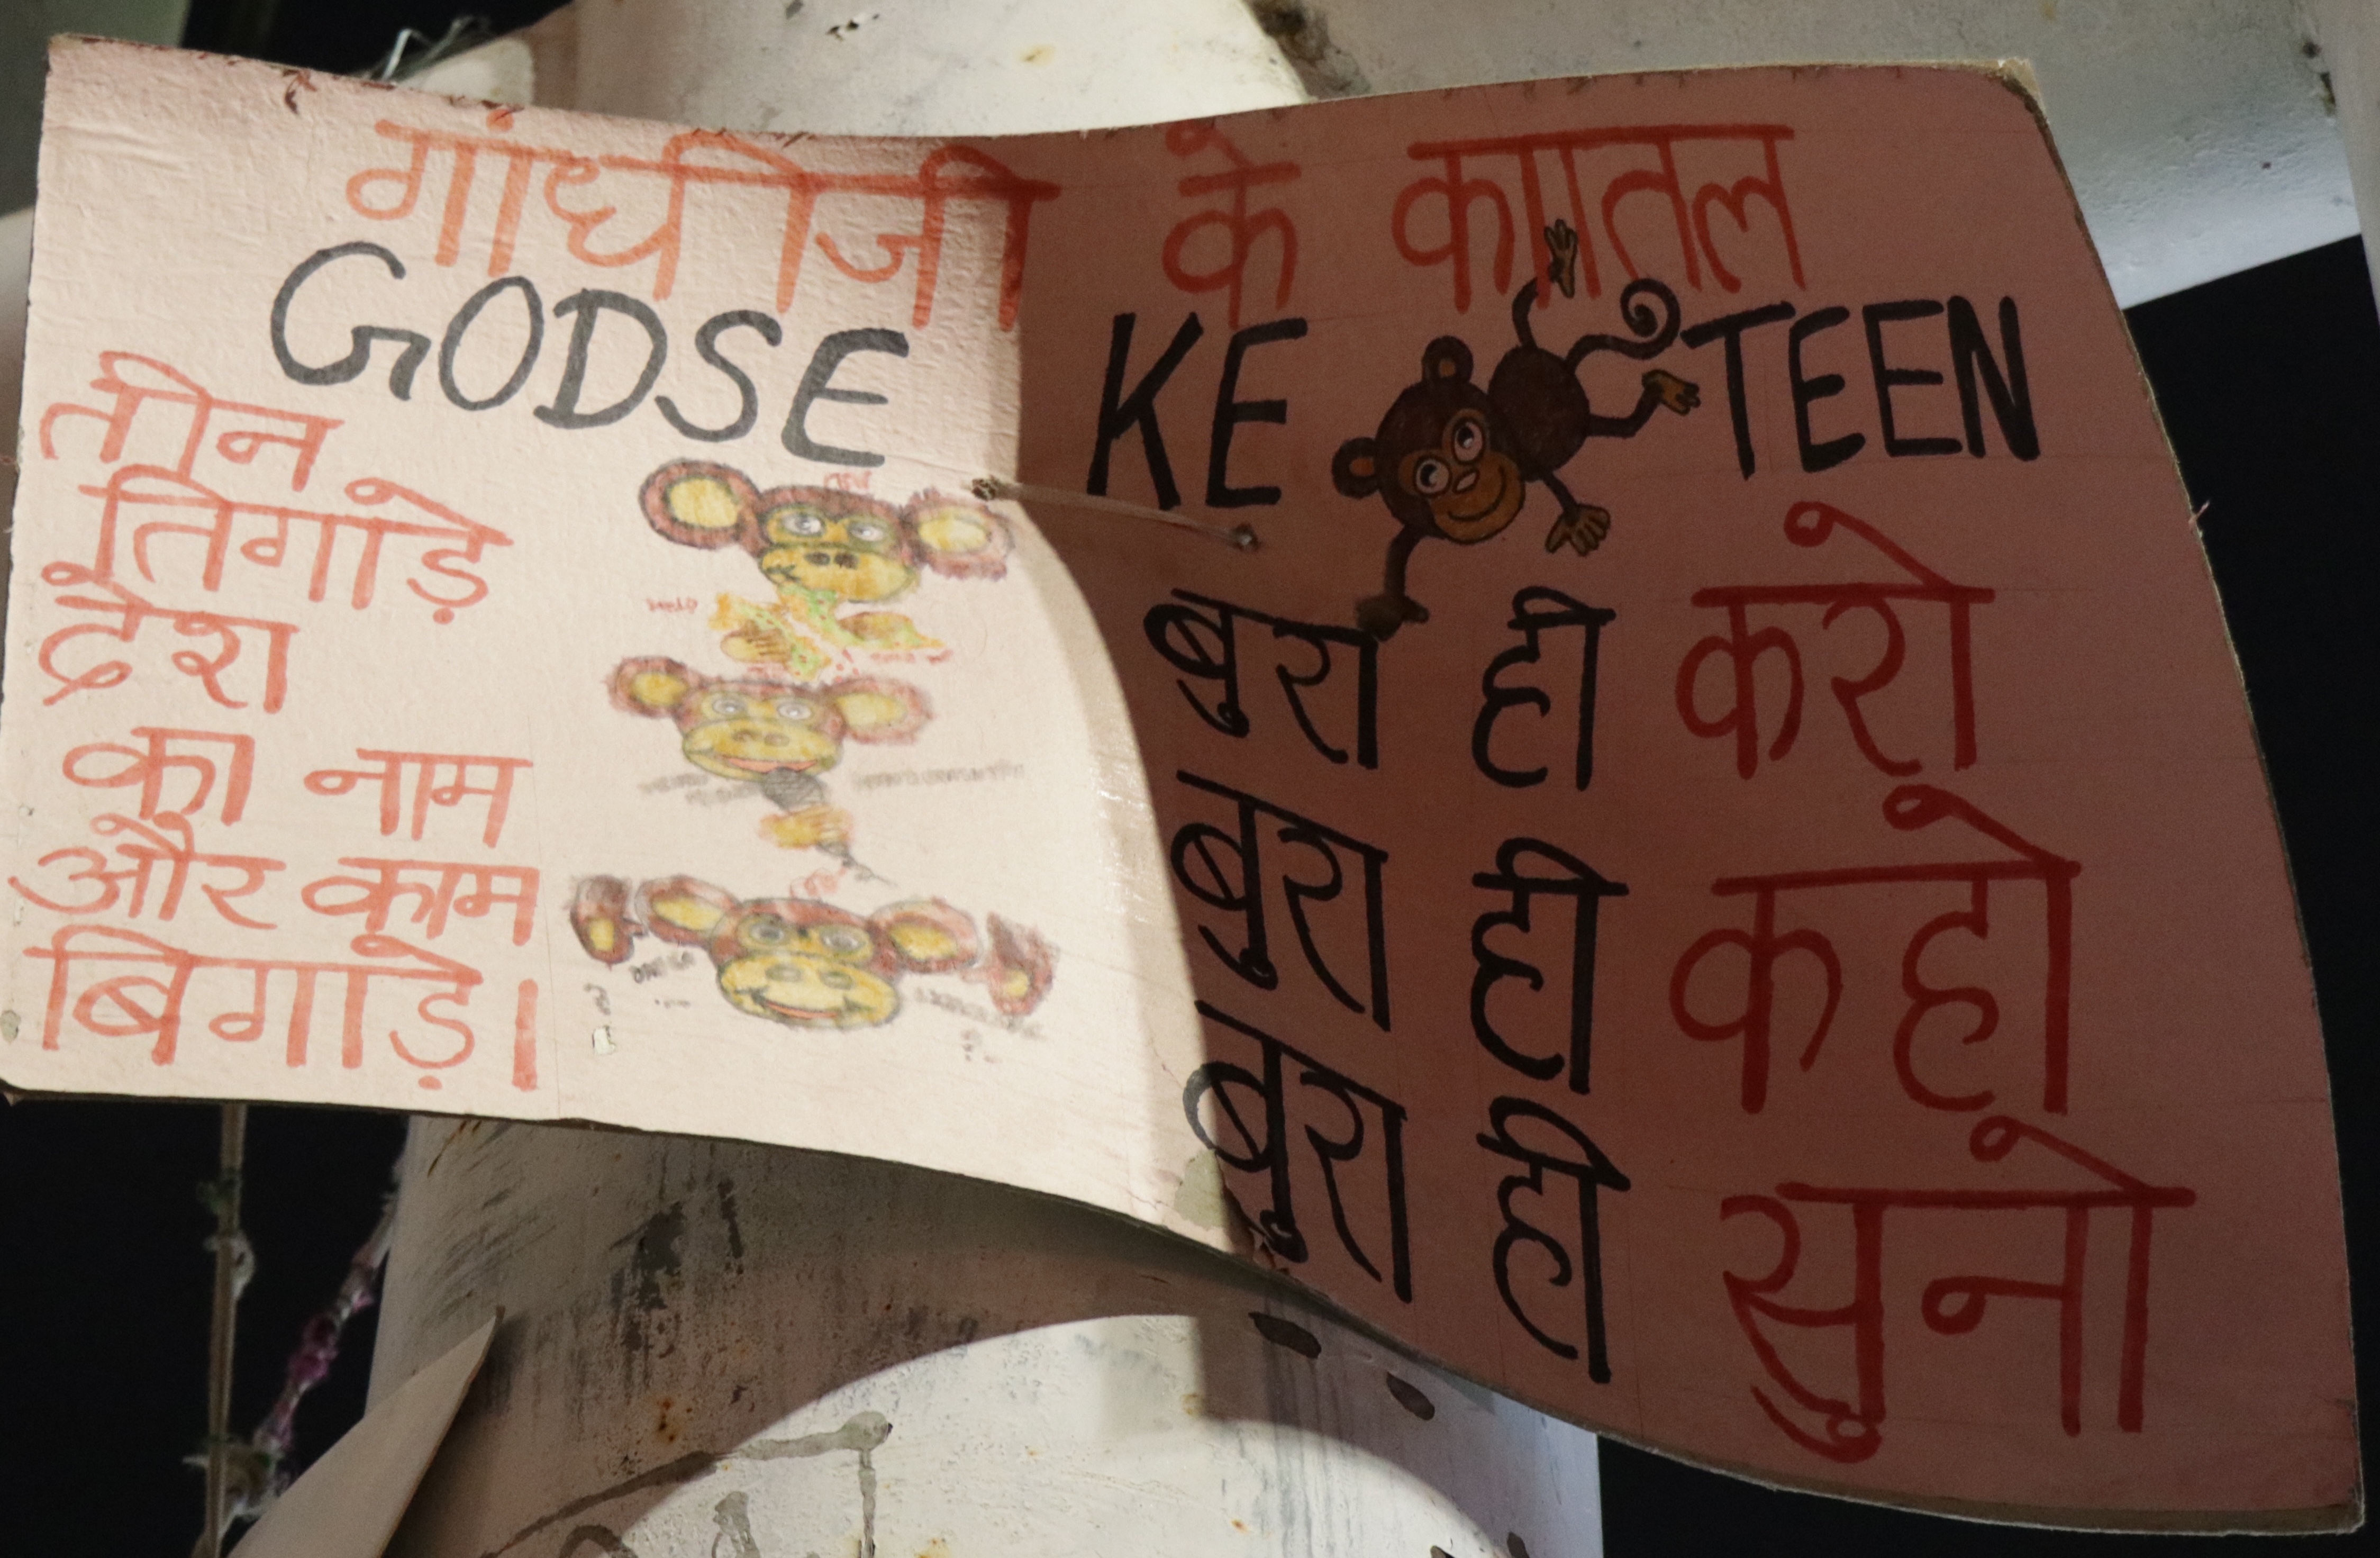 गांधीजी के काातल
GODSE KE TEEN
तीन
तिगाड़े
देश
का नाम
और काम
बिगाड़े।
बुरा ही करो
बुरा ही कहो
बुरा ही सुनो